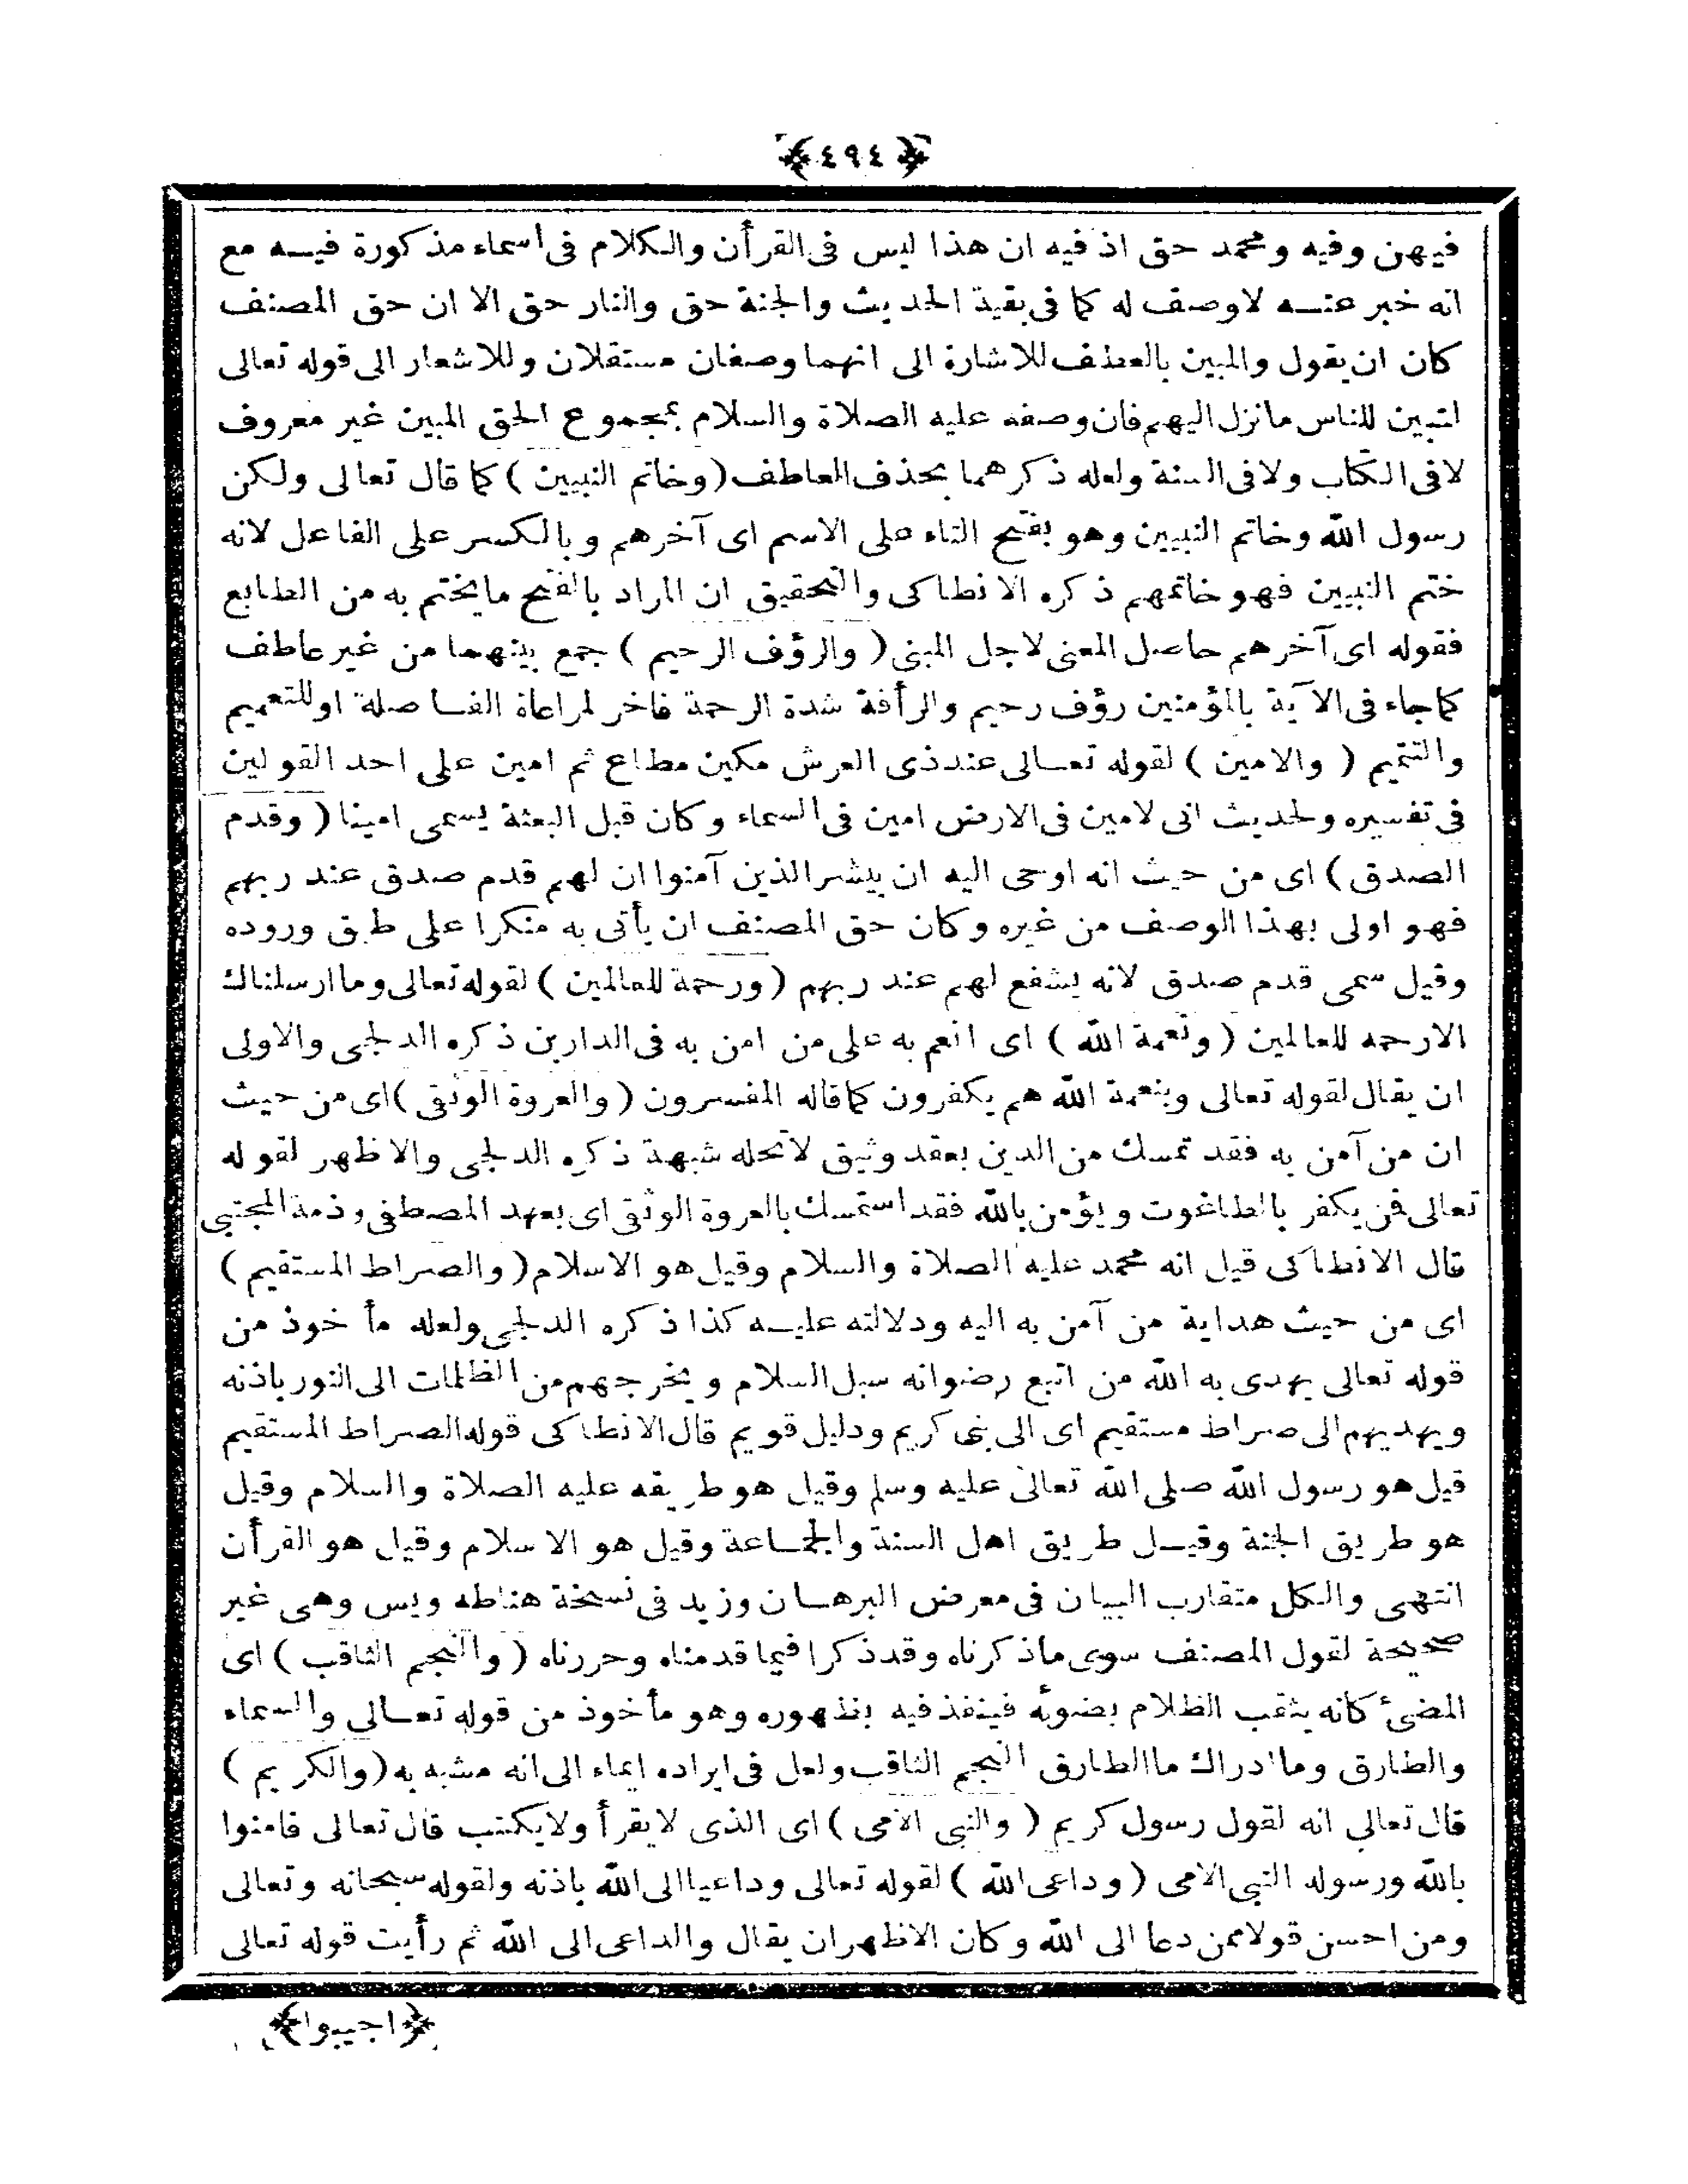 ﴿٤٩٤﴾
فيهن وفيه ومحمد حق اذ فيه ان هذا ليس فى القرأن والكلام فى اسماء مذكورة فيه مع
انه خبر عنه لاوصف له كما فى بقية الحديث والجنة حق والنار حق الا ان حق المصنف
كان ان يقول والمبين بالعطف للاشارة الى انهما وصفان مستقلان وللاشعار الى قوله تعالى
لتبين للناس مانزل اليهم فان وصفه عليه الصلاة والسلام بمجموع الحق المبين غير معروف
لافى الكتاب ولا فى السنة ولعله ذكرهما بحذف العاطف (وخاتم النبيين) كما قال تعالى ولكن
رسول الله وخاتم النبيين وهو بفتح التاء على الاسم اى آخرهم وبالكسر على الفاعل لانه
ختم النبيين فهو خاتمهم ذكره الانطاكى والتحقيق ان المراد بالفتح مايختم به من الطابع
فقوله اى آخرهم حاصل المعنى لاجل المبنى (والرؤف الرحيم) جمع بينهما من غير عاطف
كماجاء فى الآية بالمؤمنين رؤف رحيم والرأفة شدة الرحمة فاخر لمراعاة الفاصلة اوللتعميم
والتتميم (والامين) لقوله تعالى عند ذى العرش مكين مطاع ثم امين على احد القولين
فى تفسيره ولحديث انى لامين فى الارض امين فى السماء وكان قبل البعثة يسمى امينا (وقدم
الصدق) اى من حيث انه اوحى اليه ان يبشر الذين آمنوا ان لهم قدم صدق عند ربهم
فهو اولى بهذا الوصف من غيره وكان حق المصنف ان يأتى به منكرا على طبق وروده
وقيل سمى قدم صدق لانه يشفع لهم عند ربهم (ورحمة للعالمين) لقوله تعالى وما ارسلناك
الارحمه للعالمين (ونعمة الله) اى انعم به على من امن به فى الدارين ذكره الدلجى والاولى
ان يقال لقوله تعالى وبنعمة الله هم يكفرون كماقاله المفسرون (والعروة الوثقى) اى من حيث
ان من آمن به فقد تمسك من الدين بعقد وثيق لاتحله شبهة ذكره الدلجى والاظهر لقوله
تعالى فمن يكفر بالطاغوت ويؤمن بالله فقد استمسك بالعروة الوثقى اى بعهد المصطفى وذمة المجتبى
قال الانطاكى قيل انه محمد عليه الصلاة والسلام وقيل هو الاسلام (والصراط المستقيم)
اى من حيث هداية من آمن به اليه ودلالته عليه كذا ذكره الدلجى ولعله مأخوذ من
قوله تعالى يهدى به الله من اتبع رضوانه سبل السلام ويخرجهم من الظلمات الى النور باذنه
ويهديهم الى صراط مستقيم اى الى نبى كريم ودليل قويم قال الانطاكى قوله الصراط المستقيم
قيل هو رسول الله صلى الله تعالى عليه وسلم وقيل هو طريقه عليه الصلاة والسلام وقيل
هو طريق الجنة وقيل طريق اهل السنة والجماعة وقيل هو الاسلام وقيل هو القرأن
انتهى والكل متقارب البيان فى معرض البرهان وزيد فى نسخة هنا طه ويس وهى غير
صحيحة لقول المصنف سوى ماذكرناه وقد ذكرا فيما قدمناه وحررناه (والنجم الثاقب) اى
المضئ كانه يثقب الظلام بضوئه فينفذ فيه بظهوره وهو مأخوذ من قوله تعالى والسماء
والطارق وما ادراك ماالطارق النجم الثاقب ولعل فى ايراده ايماء الى انه مشبه به (والكريم)
قال تعالى انه لقول رسول كريم (والنبى الامى) اى الذى لايقرأ ولايكتب قال تعالى فامنوا
بالله ورسوله النبى الامى (وداعى الله) لقوله تعالى وداعيا الى الله باذنه ولقوله سبحانه وتعالى
ومن احسن قولا ممن دعا الى الله وكان الاظهر ان يقال والداعى الى الله ثم رأيت قوله تعالى
﴿اجيبوا﴾